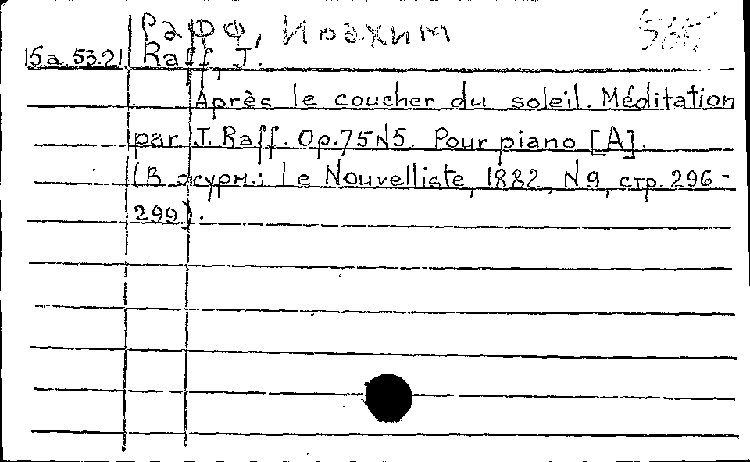 Рафф, Иоахим
15a.53.21 Raff, J.
Après le coucher du soleil. Méditation
par J. Raff. Op.75 N5. Pour piano [A].
(В журн.: Le Nouvelliste, 1882, N9, стр. 296-
299).